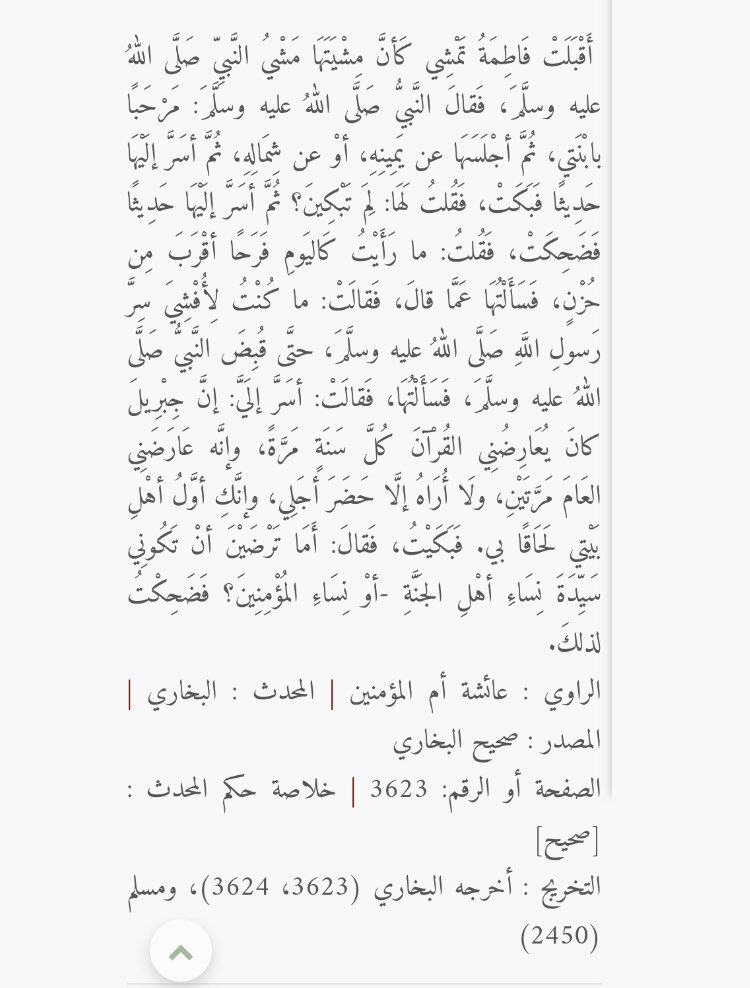 أَقْبَلَتْ فَاطِمَةُ تَمْشِي كَأنَّ مِشْيَتَهَا مَشْيُ النَّبيِّ صَلَّى اللهُ
عليه وسلَّمَ، فَقالَ النَّبيُّ صَلَّى اللهُ عليه وسلَّمَ: مَرْحَبًا
بابْنَتِي، ثُمَّ أجْلَسَهَا عن يَمِينِهِ، أوْ عن شِمَالِهِ، ثُمَّ أسَرَّ إلَيْهَا
حَدِيثًا فَبَكَتْ، فَقُلتُ لَهَا: لِمَ تَبْكِينَ؟ ثُمَّ أسَرَّ إلَيْهَا حَدِيثًا
فَضَحِكَتْ، فَقُلتُ: ما رَأَيْتُ كَاليَومِ فَرَحًا أقْرَبَ مِن
حُزْنٍ، فَسَأَلْتُهَا عَمَّا قالَ، فَقالَتْ: ما كُنْتُ لِأُفْشِيَ سِرَّ
رَسولِ اللَّهِ صَلَّى اللهُ عليه وسلَّمَ، حتَّى قُبِضَ النَّبيُّ صَلَّى
اللهُ عليه وسلَّمَ، فَسَأَلْتُهَا، فَقالَتْ: أسَرَّ إلَيَّ: إنَّ جِبْرِيلَ
كانَ يُعَارِضُنِي القُرْآنَ كُلَّ سَنَةٍ مَرَّةً، وإنَّه عَارَضَنِي
العَامَ مَرَّتَيْنِ، ولَا أُرَاهُ إلَّا حَضَرَ أجَلِي، وإنَّكِ أوَّلُ أهْلِ
بَيْتي لَحَاقًا بي. فَبَكَيْتُ، فَقالَ: أَمَا تَرْضَيْنَ أنْ تَكُونِي
سَيِّدَةَ نِسَاءِ أهْلِ الجَنَّةِ -أوْ نِسَاءِ المُؤْمِنِينَ؟ فَضَحِكْتُ
لذلكَ.
الراوي : عائشة أم المؤمنين | المحدث : البخاري |
المصدر : صحيح البخاري
الصفحة أو الرقم: 3623 | خلاصة حكم المحدث :
[صحيح]
التخريج : أخرجه البخاري (3623، 3624)، ومسلم
(2450)